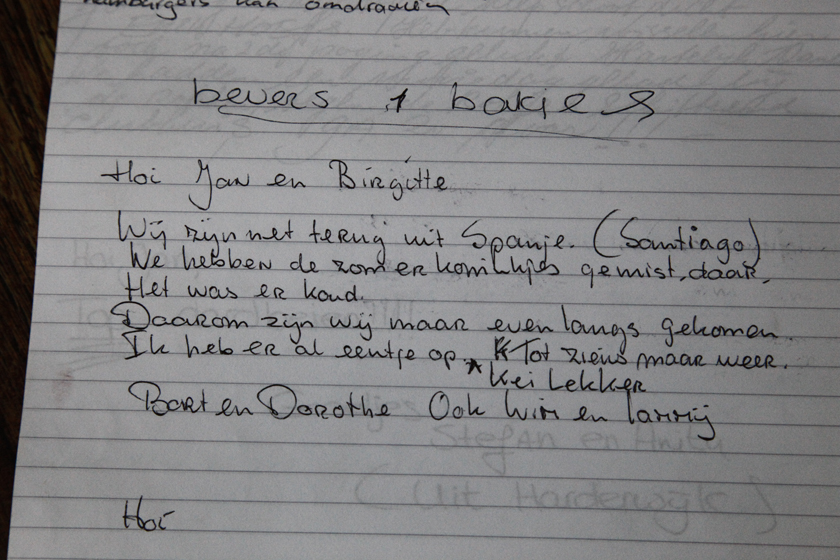 hamburgers kan omdraaien
bevers 1 bakjes
Hoi Jan en Birgitte
Wij zijn net terug uit Spanje. (Santiago)
We hebben de zomer gemist, daar.
Het was er koud.
Daarom zijn wij maar even langs gekomen.
Ik heb er al eentje op. * Tot ziens maar weer.
* Kei Lekker
Bart en Dorothe Ook Wim en Larrij
Stefan en Anita
(Uit Harderwijk)
Hoi